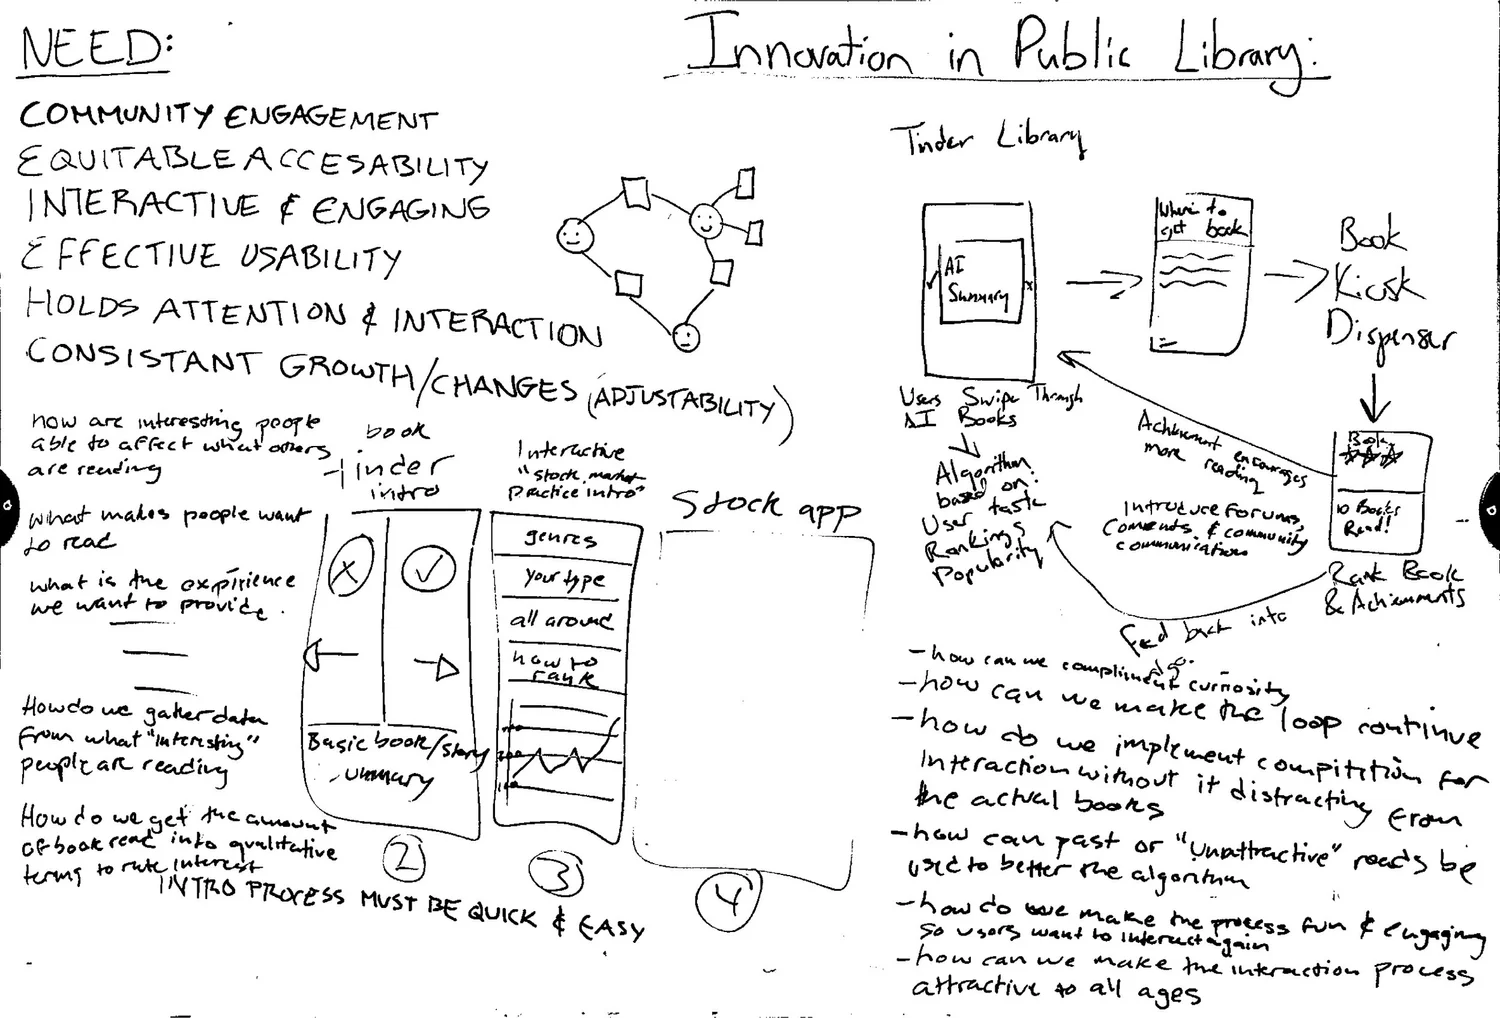 NEED:
COMMUNITY ENGAGEMENT
EQUITABLE ACCESABILITY
INTERACTIVE & ENGAGING
EFFECTIVE USABILITY
HOLDS ATTENTION & INTERACTION
CONSISTANT GROWTH/CHANGES (ADJUSTABILITY)
how are interesting people
able to affect what others
are reading
what makes people want
to read
what is the expirience
we want to provide.
How do we gather data
from what "interesting"
people are reading
How do we get the amount
of book read into qualitative
terms to rate interest
book
Tinder
intro
Basic book/story
summary
2
Interactive
"stock market
practice intro"
genres
your type
all around
how to
rank
3
Stock app
4
INTRO PROCESS MUST BE QUICK & EASY
Innovation in Public Library:
Tinder Library
AI
Summary
Users Swipe Through
AI Books
Algorithm
based on:
User taste
Rankings
Popularity
Where to
get book
Book
Kiosk
Dispenser
Book
10 Books
Read!
Rank Book
& Achievments
Achievement encourages
more reading
Introduce Forums,
Comments, & community
communication
Feed back into
- how can we compliment curriosity
- how can we make the loop continue
- how do we implement compitition for
interaction without it distracting from
the actual books
- how can past or "unattractive" reads be
used to better the algorithm
- how do we make the process fun & engaging
so users want to interact again
- how can we make the interaction process
attractive to all ages